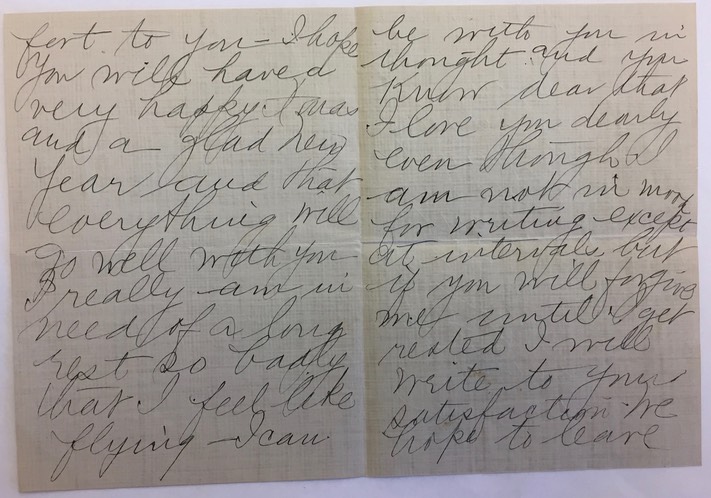 fort to you - I hope
You will have a
very happy Xmas
and a glad New
Year and that
everything will
go well with you
I really am in
need of a long
rest so badly
that I feel like
flying - I can
be with you in
thought and you
Know dear that
I love you dearly
even though I
am not in mood
for writing except
at intervals but
if you will forgive
me until I get
rested I will
write to your
satisfaction. We
hope to leave